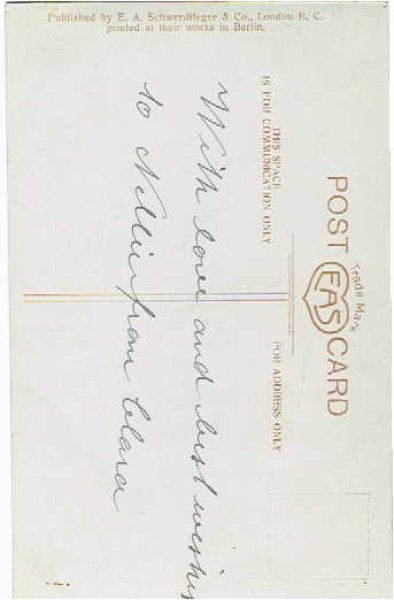 Published by E. A. Schwerdtfeger & Co., London E. C.
printed at their works in Berlin.
POST CARD
Trade Mark
EAS
THIS SPACE
IS FOR COMMUNICATION ONLY
FOR ADDRESS ONLY
With love and best wishes
to Nellie from Clara